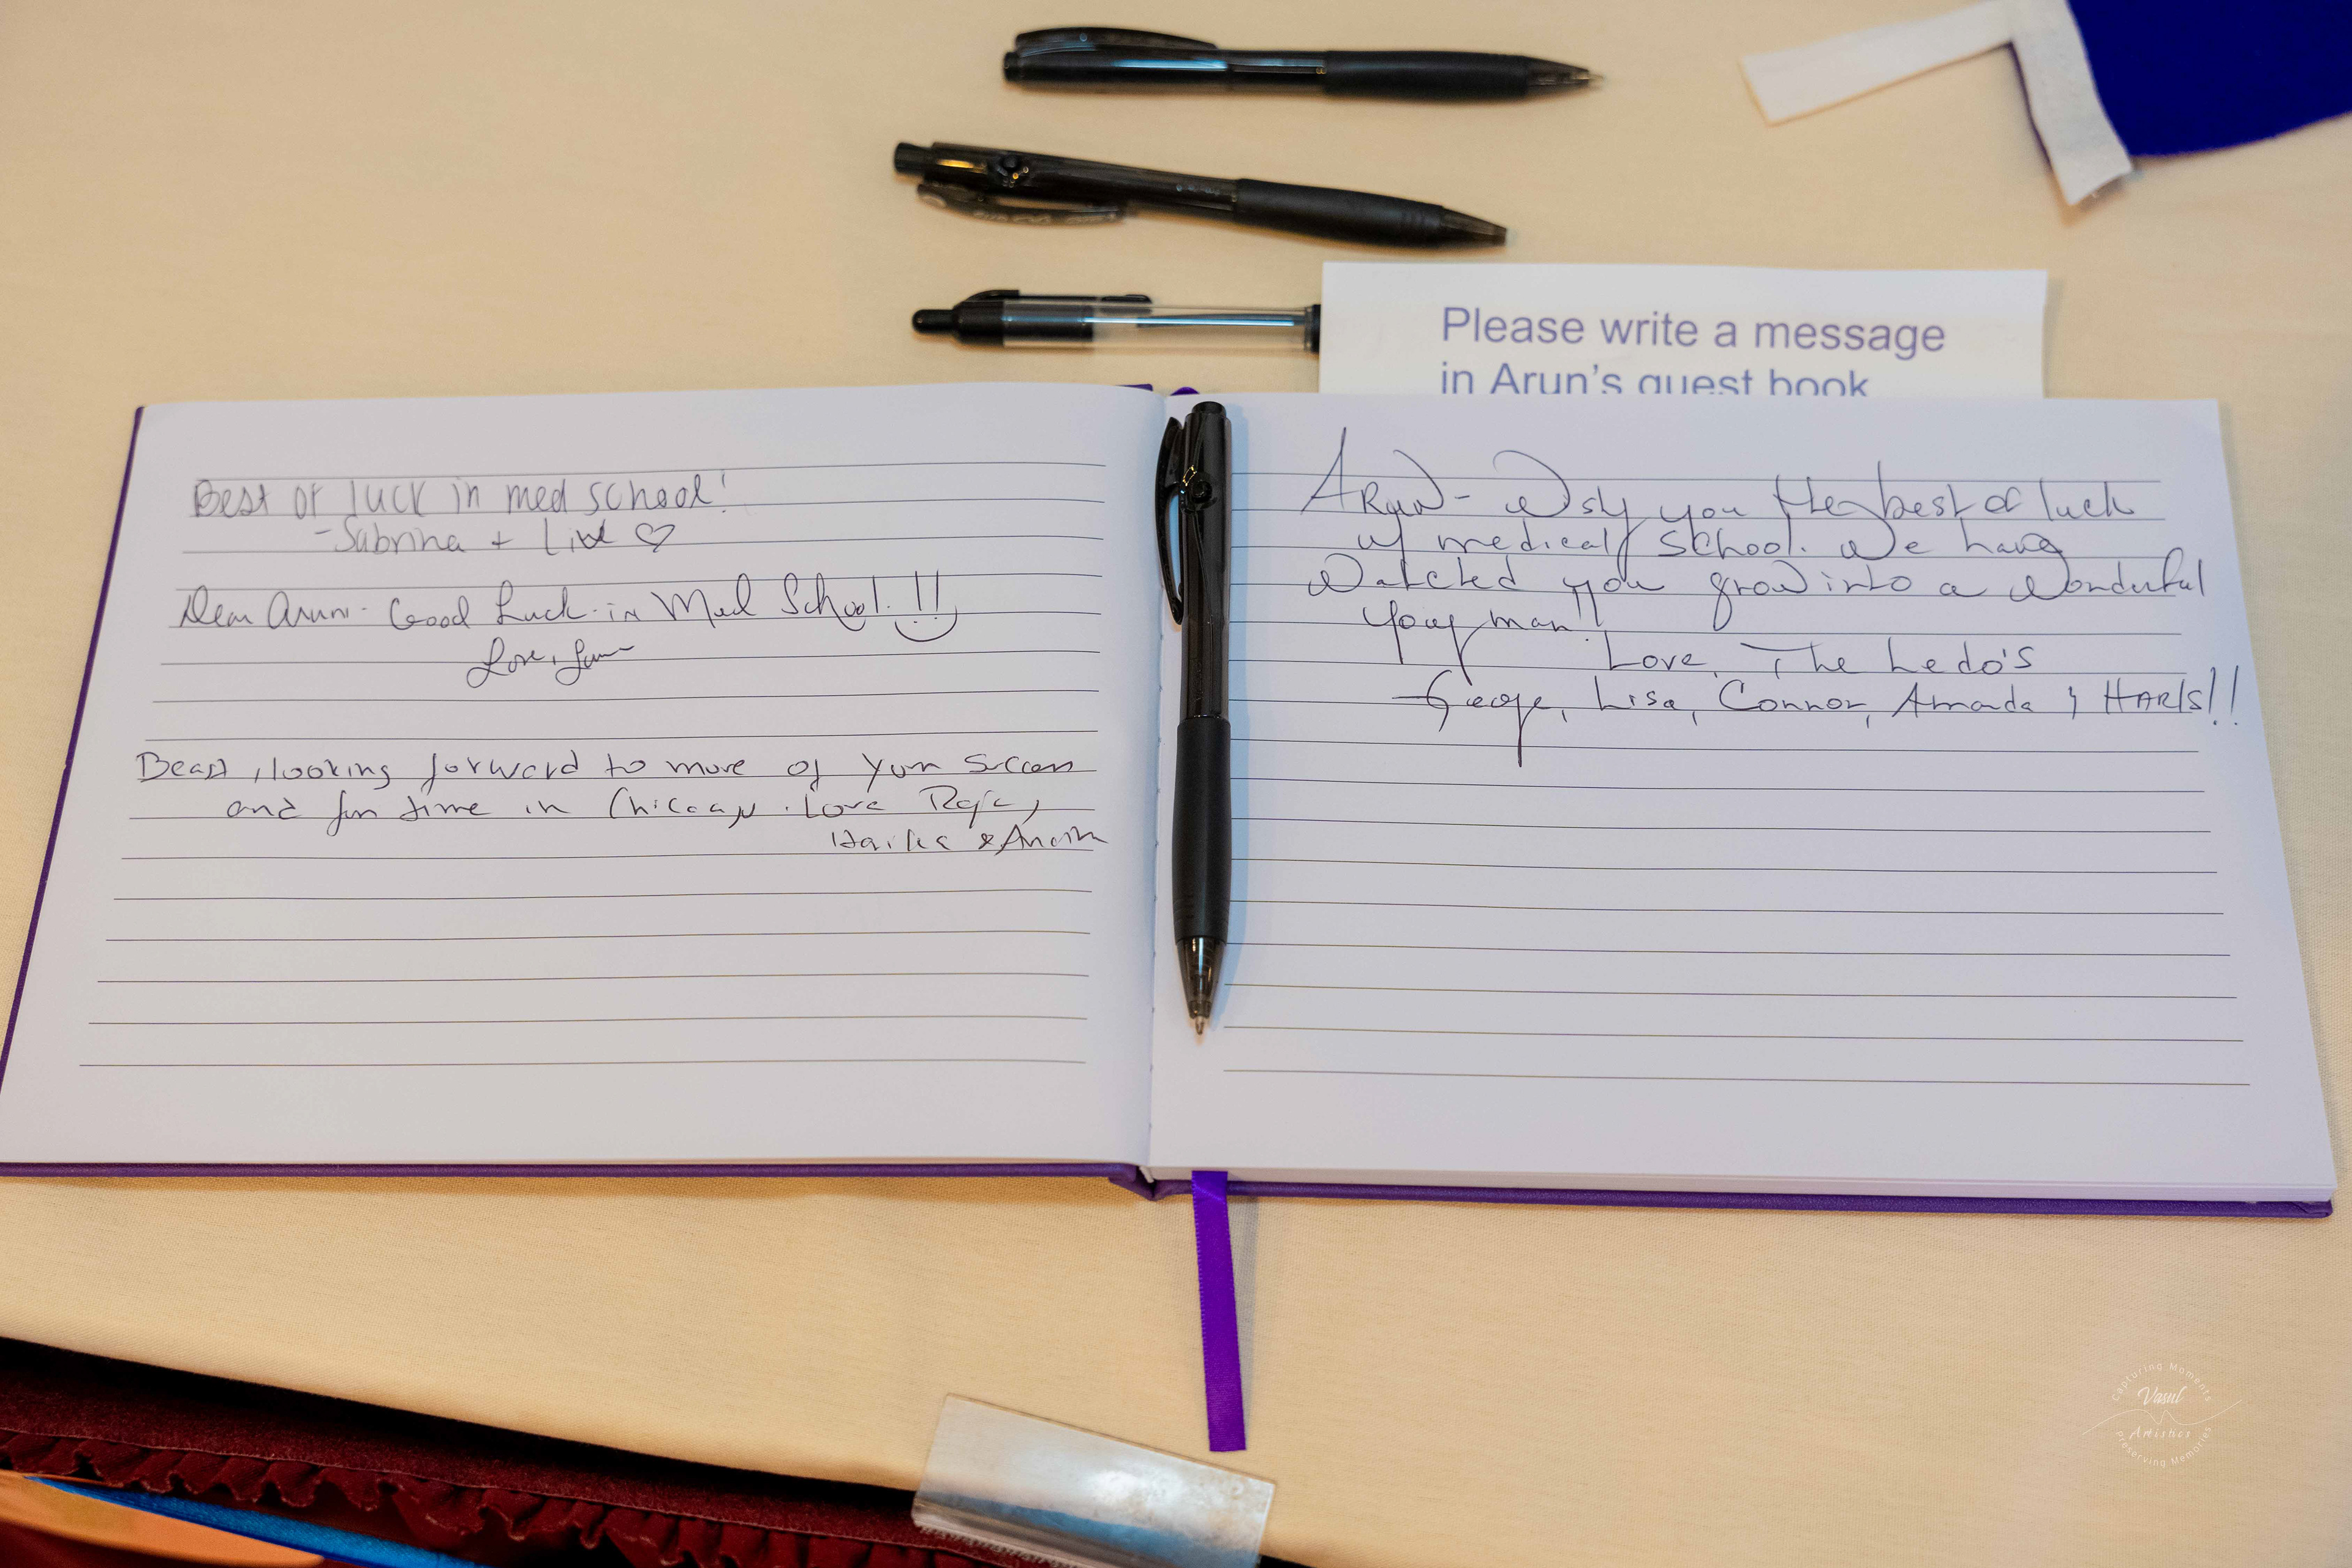 Please write a message
in Arun's guest book
Best of luck in med school!
-Sabrina + Livi ♡
Dear Arun - Good Luck in Med School!!
Love,
Beast, looking forward to more of your success
and fun time in Chicago. Love Raja,
& 
ARUN - Wish you the best of luck
w/ medical school. We have
watched you grow into a wonderful
young man!!
Love, The Ledo's
George, Lisa, Connor, Amanda & HARIS!!
Capturing Moments
Vasul
Artistics
Preserving Memories